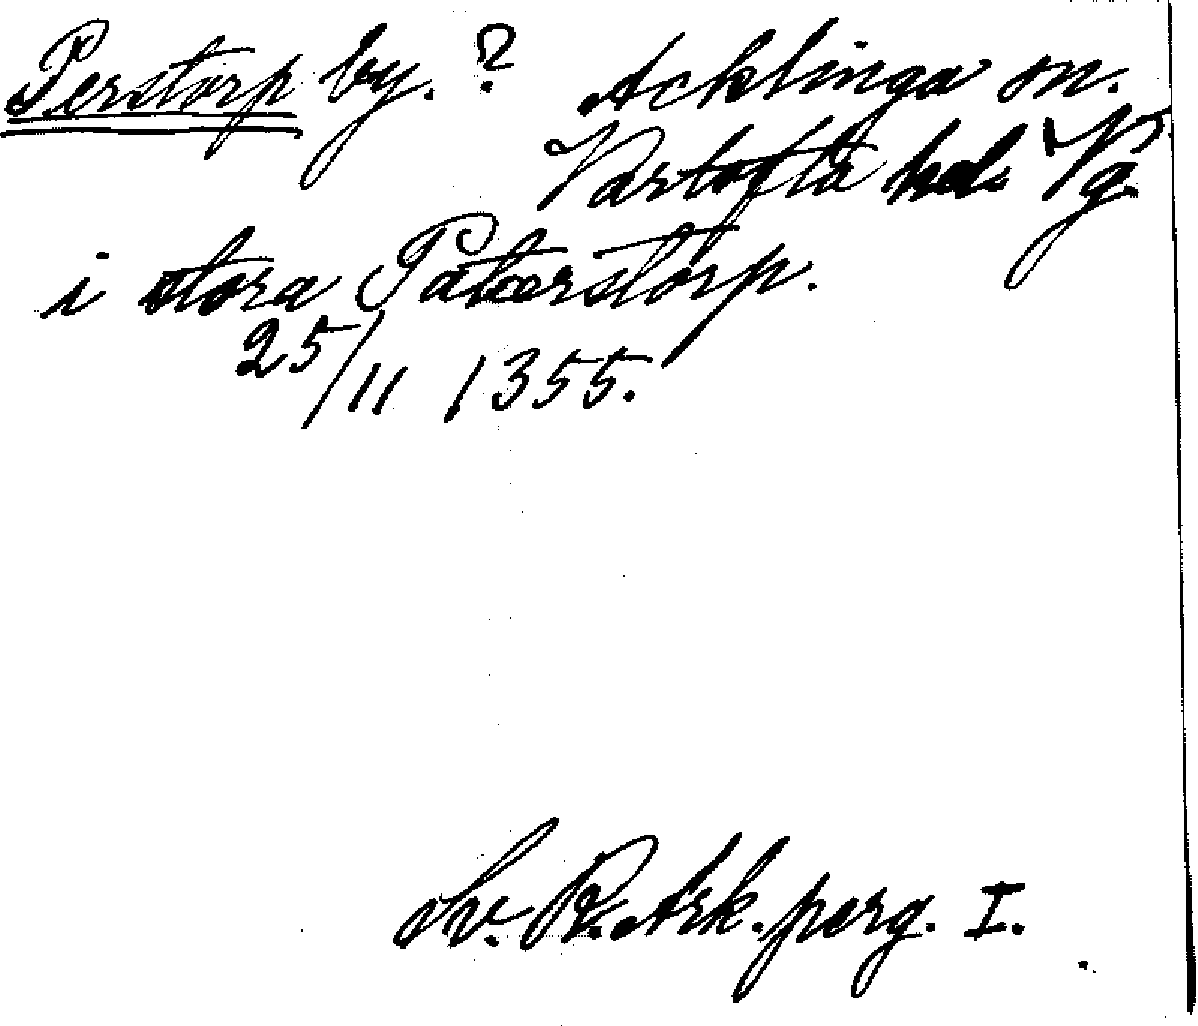 Perstorp by. ? Acklinga sn.
Vartofta hd. Vg.
i stora Paterstorp.
25/11 1355.
Sv. R. Ark. perg. I.